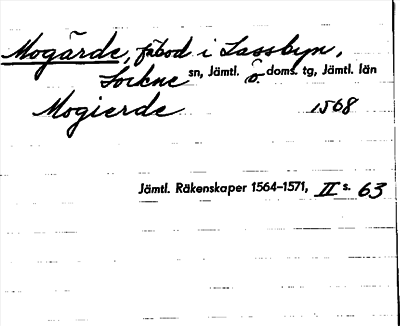 Mogärde, fäbod i Lassbyn,
Lockne sn, Jämtl. ö. doms. tg, Jämtl. län
Mogierde 1568
Jämtl. Räkenskaper 1564–1571, II s. 63